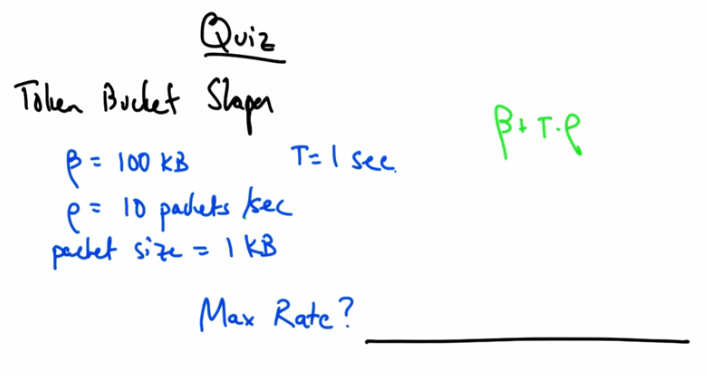 Quiz
Token Bucket Shaper
β = 100 KB
T = 1 sec.
ρ = 10 packets/sec
packet size = 1 KB
β + T·ρ
Max Rate?